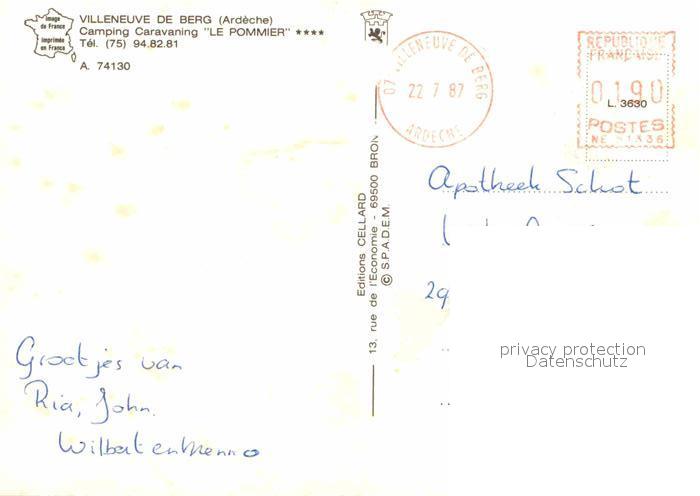 image
de France
imprimée
en France
VILLENEUVE DE BERG (Ardèche)
Camping Caravaning "LE POMMIER" ★★★★
Tél. (75) 94.82.81
A. 74130
07 VILLENEUVE DE BERG
22 7 87
ARDECHE
REPUBLIQUE
FRANCAISE
0190
L. 3630
POSTES
Editions CELLARD
13, rue de l'Economie - 69500 BRON
© S.P.A.D.E.M.
Apotheek Schot
29
privacy protection
Datenschutz
Groetjes van
Ria, John.
Wilbert en Menno